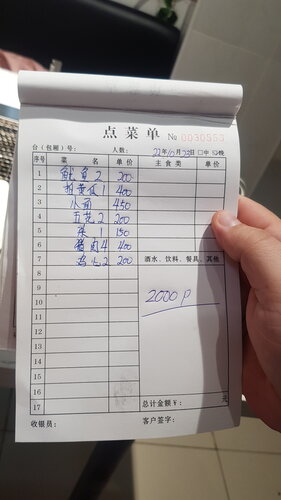 点菜单 No 0030553
台(包厢)号: 人数: 22年10月22日 □中 □晚
序号 菜名 单价 主食类 单价
1 鱿鱼2 200
2 拍黄瓜1 400
3 小面 450
4 五花2 200
5 菜1 150
6 猪肉4 400
7 鸡心2 200 酒水、饮料、餐具、其他
8
9
2000 P
10
11
12
13
14
15
16
17 总计金额¥: 元
收银员: 客户签字: